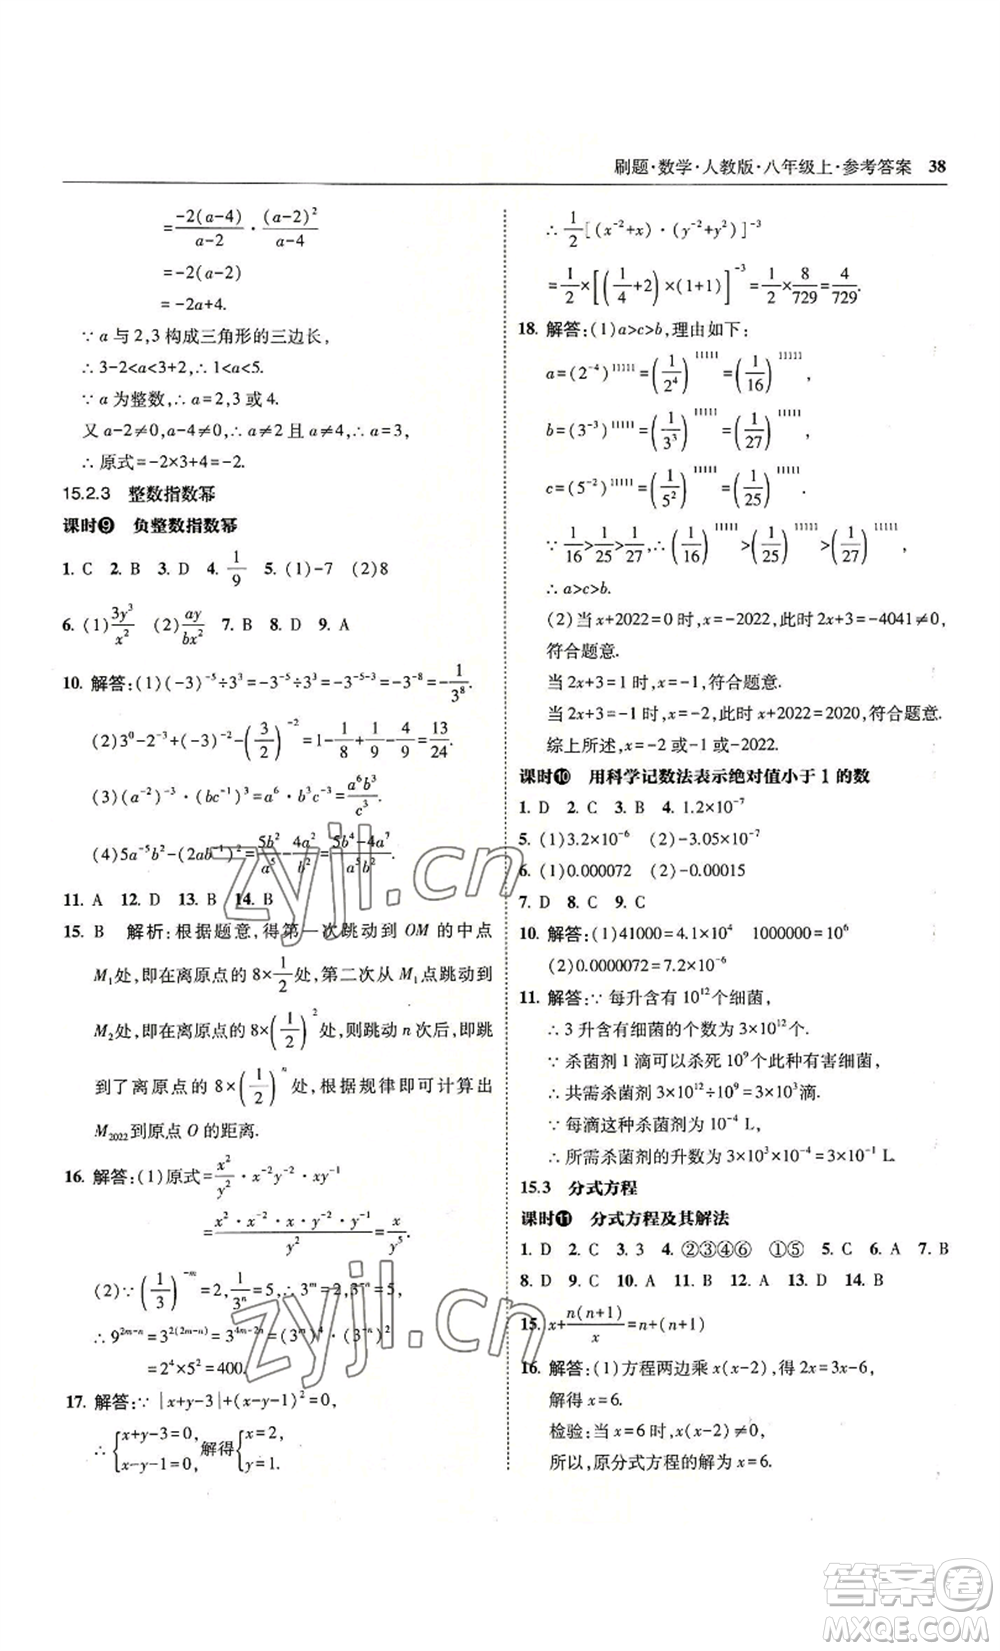 刷题·数学·人教版·八年级上·参考答案 38
=\frac{-2(a-4)}{a-2}·\frac{(a-2)^2}{a-4}
=-2(a-2)
=-2a+4.
∵a与2,3构成三角形的三边长,
∴3-2<a<3+2,∴1<a<5.
∵a为整数,∴a=2,3或4.
又a-2≠0,a-4≠0,∴a≠2且a≠4,∴a=3,
∴原式=-2×3+4=-2.
15.2.3 整数指数幂
课时❾ 负整数指数幂
1. C 2. B 3. D 4. \frac{1}{9} 5. (1)-7 (2)8
6. (1)\frac{3y^3}{x^2} (2)\frac{ay}{bx^2} 7. B 8. D 9. A
10. 解答:(1)(-3)^{-5}÷3^3=-3^{-5}÷3^3=-3^{-5-3}=-3^{-8}=-\frac{1}{3^8}.
(2)3^0-2^{-3}+(-3)^{-2}-(\frac{3}{2})^{-2}=1-\frac{1}{8}+\frac{1}{9}-\frac{4}{9}=\frac{13}{24}
(3)(a^{-2})^{-3}·(bc^{-1})^3=a^6·b^3c^{-3}=\frac{a^6b^3}{c^3}.
(4)5a^{-5}b^2-(2ab^{-1})^2=\frac{5b^2}{a^5}-\frac{4a^2}{b^2}=\frac{5b^4-4a^7}{a^5b^2}.
11. A 12. D 13. B 14. B
15. B 解析:根据题意,得第一次跳动到OM的中点
M_1处,即在离原点的8×\frac{1}{2}处,第二次从M_1点跳动到
M_2处,即在离原点的8×(\frac{1}{2})^2处,则跳动n次后,即跳
到了离原点的8×(\frac{1}{2})^n处,根据规律即可计算出
M_{2022}到原点O的距离.
16. 解答:(1)原式=\frac{x^2}{y^2}·x^{-2}y^{-2}·xy^{-1}
=\frac{x^2·x^{-2}·x·y^{-2}·y^{-1}}{y^2}=\frac{x}{y^5}.
(2)∵(\frac{1}{3})^{-m}=2,\frac{1}{3^n}=5,∴3^m=2,3^{-n}=5,
∴9^{2m-n}=3^{2(2m-n)}=3^{4m-2n}=(3^m)^4·(3^{-n})^2
=2^4×5^2=400.
17. 解答:∵|x+y-3|+(x-y-1)^2=0,
∴{x+y-3=0, x-y-1=0, 解得{x=2, y=1.
∴\frac{1}{2}[(x^{-2}+x)·(y^{-2}+y^2)]^{-3}
=\frac{1}{2}×[(\frac{1}{4}+2)×(1+1)]^{-3}=\frac{1}{2}×\frac{8}{729}=\frac{4}{729}.
18. 解答:(1)a>c>b,理由如下:
a=(2^{-4})^{11111}=(\frac{1}{2^4})^{11111}=(\frac{1}{16})^{11111},
b=(3^{-3})^{11111}=(\frac{1}{3^3})^{11111}=(\frac{1}{27})^{11111},
c=(5^{-2})^{11111}=(\frac{1}{5^2})^{11111}=(\frac{1}{25})^{11111},
∵\frac{1}{16}>\frac{1}{25}>\frac{1}{27},∴(\frac{1}{16})^{11111}>(\frac{1}{25})^{11111}>(\frac{1}{27})^{11111},
∴a>c>b.
(2)当x+2022=0时,x=-2022,此时2x+3=-4041≠0,
符合题意.
当2x+3=1时,x=-1,符合题意.
当2x+3=-1时,x=-2,此时x+2022=2020,符合题意.
综上所述,x=-2或-1或-2022.
课时❿ 用科学记数法表示绝对值小于1的数
1. D 2. C 3. B 4. 1.2×10^{-7}
5. (1)3.2×10^{-6} (2)-3.05×10^{-7}
6. (1)0.000072 (2)-0.00015
7. D 8. C 9. C
10. 解答:(1)41000=4.1×10^4 1000000=10^6
(2)0.0000072=7.2×10^{-6}
11. 解答:∵每升含有10^{12}个细菌,
∴3升含有细菌的个数为3×10^{12}个.
∵杀菌剂1滴可以杀死10^9个此种有害细菌,
∴共需杀菌剂3×10^{12}÷10^9=3×10^3滴.
∵每滴这种杀菌剂为10^{-4} L,
∴所需杀菌剂的升数为3×10^3×10^{-4}=3×10^{-1} L.
15.3 分式方程
课时⓫ 分式方程及其解法
1. D 2. C 3. 3 4. ②③④⑥ ①⑤ 5. C 6. A 7. B
8. D 9. C 10. A 11. B 12. A 13. D 14. B
15. x+\frac{n(n+1)}{x}=n+(n+1)
16. 解答:(1)方程两边乘x(x-2),得2x=3x-6,
解得x=6.
检验:当x=6时,x(x-2)≠0,
所以,原分式方程的解为x=6.
zyjl.cn
zyjl.cn
答案卷
MXQE.COM